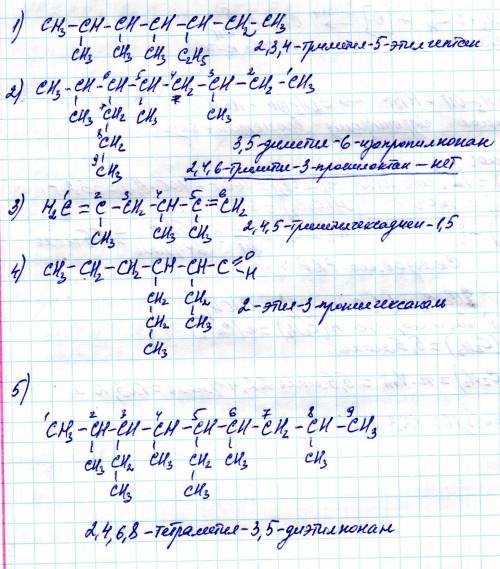 1) CH₃ - CH - CH - CH - CH - CH₂ - CH₃
CH₃ CH₃ CH₃ C₂H₅
2,3,4-триметил-5-этилгептан
2) CH₃ - CH - ⁶CH - ⁵CH - ⁴CH₂ - ³CH - ²CH₂ - ¹CH₃
CH₃ ⁷CH₂ CH₃ CH₃
⁸CH₂
⁹CH₃
3,5-диметил-6-изопропилнонан
2,4,6-триметил-3-пропилоктан - нет
3) H₂¹C = ²C - ³CH₂ - ⁴CH - ⁵C = ⁶CH₂
CH₃ CH₃ CH₃
2,4,5-триметилгексадиен-1,5
4) CH₃ - CH₂ - CH₂ - CH - CH - C = O
H
CH₂ CH₂
CH₂ CH₃
CH₃
2-этил-3-пропилгексаналь
5)
¹CH₃ - ²CH - ³CH - ⁴CH - ⁵CH - ⁶CH - ⁷CH₂ - ⁸CH - ⁹CH₃
CH₃ CH₂ CH₃ CH₂ CH₃ CH₃
CH₃ CH₃
2,4,6,8-тетраметил-3,5-диэтилнонан